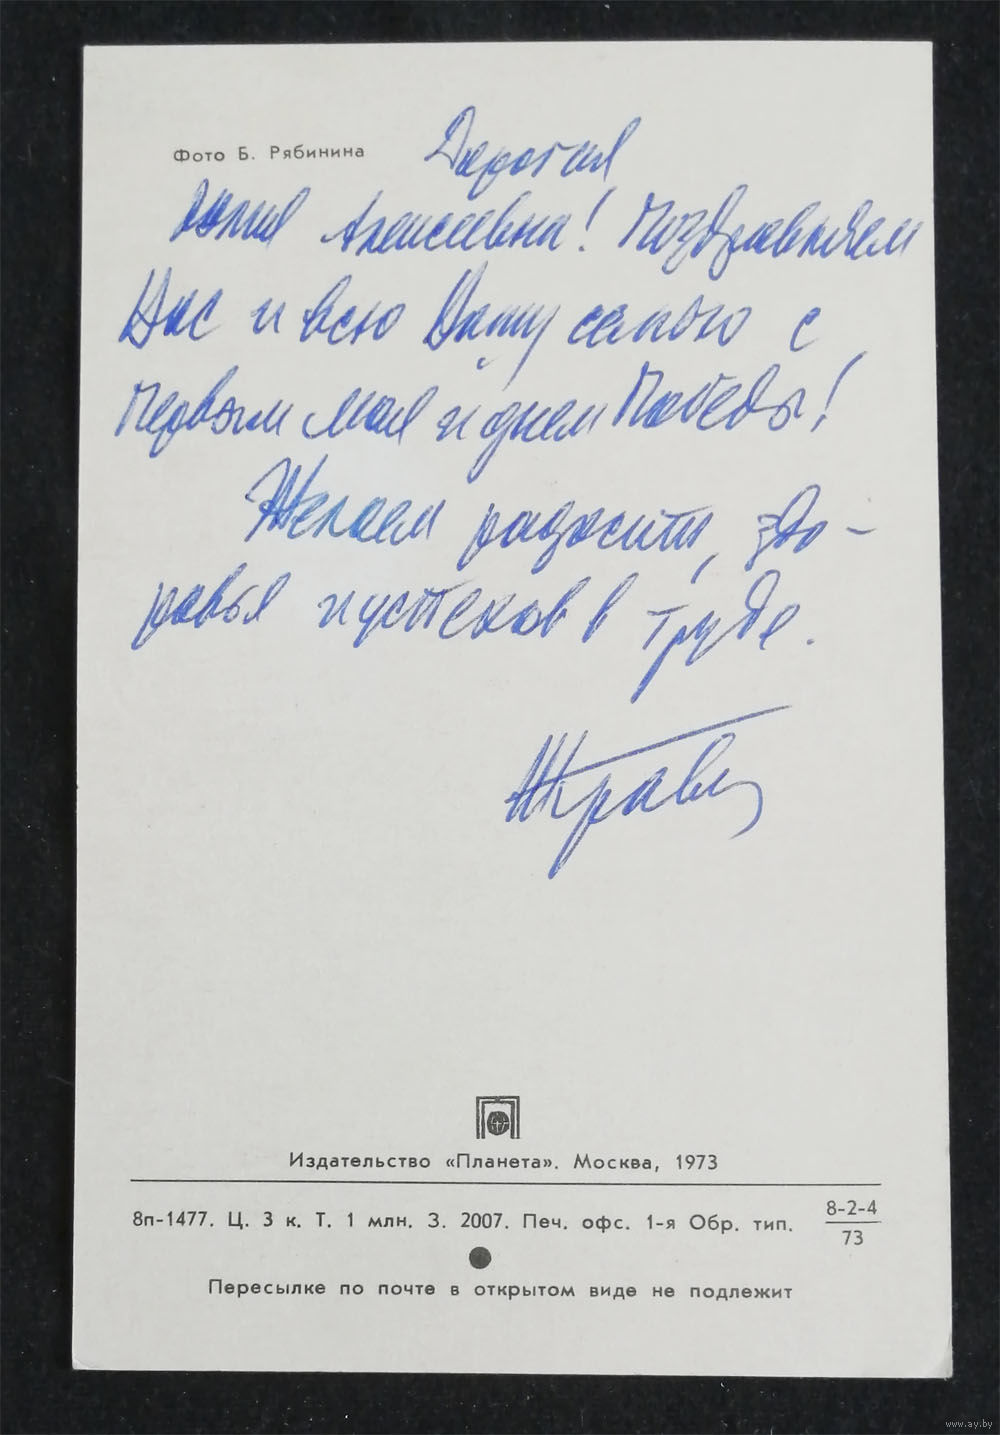 Фото Б. Рябинина
Дорогая
Юлия Алексеевна! Поздравляем
Вас и всю Вашу семью с
Первым мая и днем Победы!
Желаем радости, здо-
ровья и успехов в труде.
Издательство «Планета». Москва, 1973
8п-1477. Ц. 3 к. Т. 1 млн. З. 2007. Печ. офс. 1-я Обр. тип.
8-2-4
73
Пересылке по почте в открытом виде не подлежит
www.ay.by